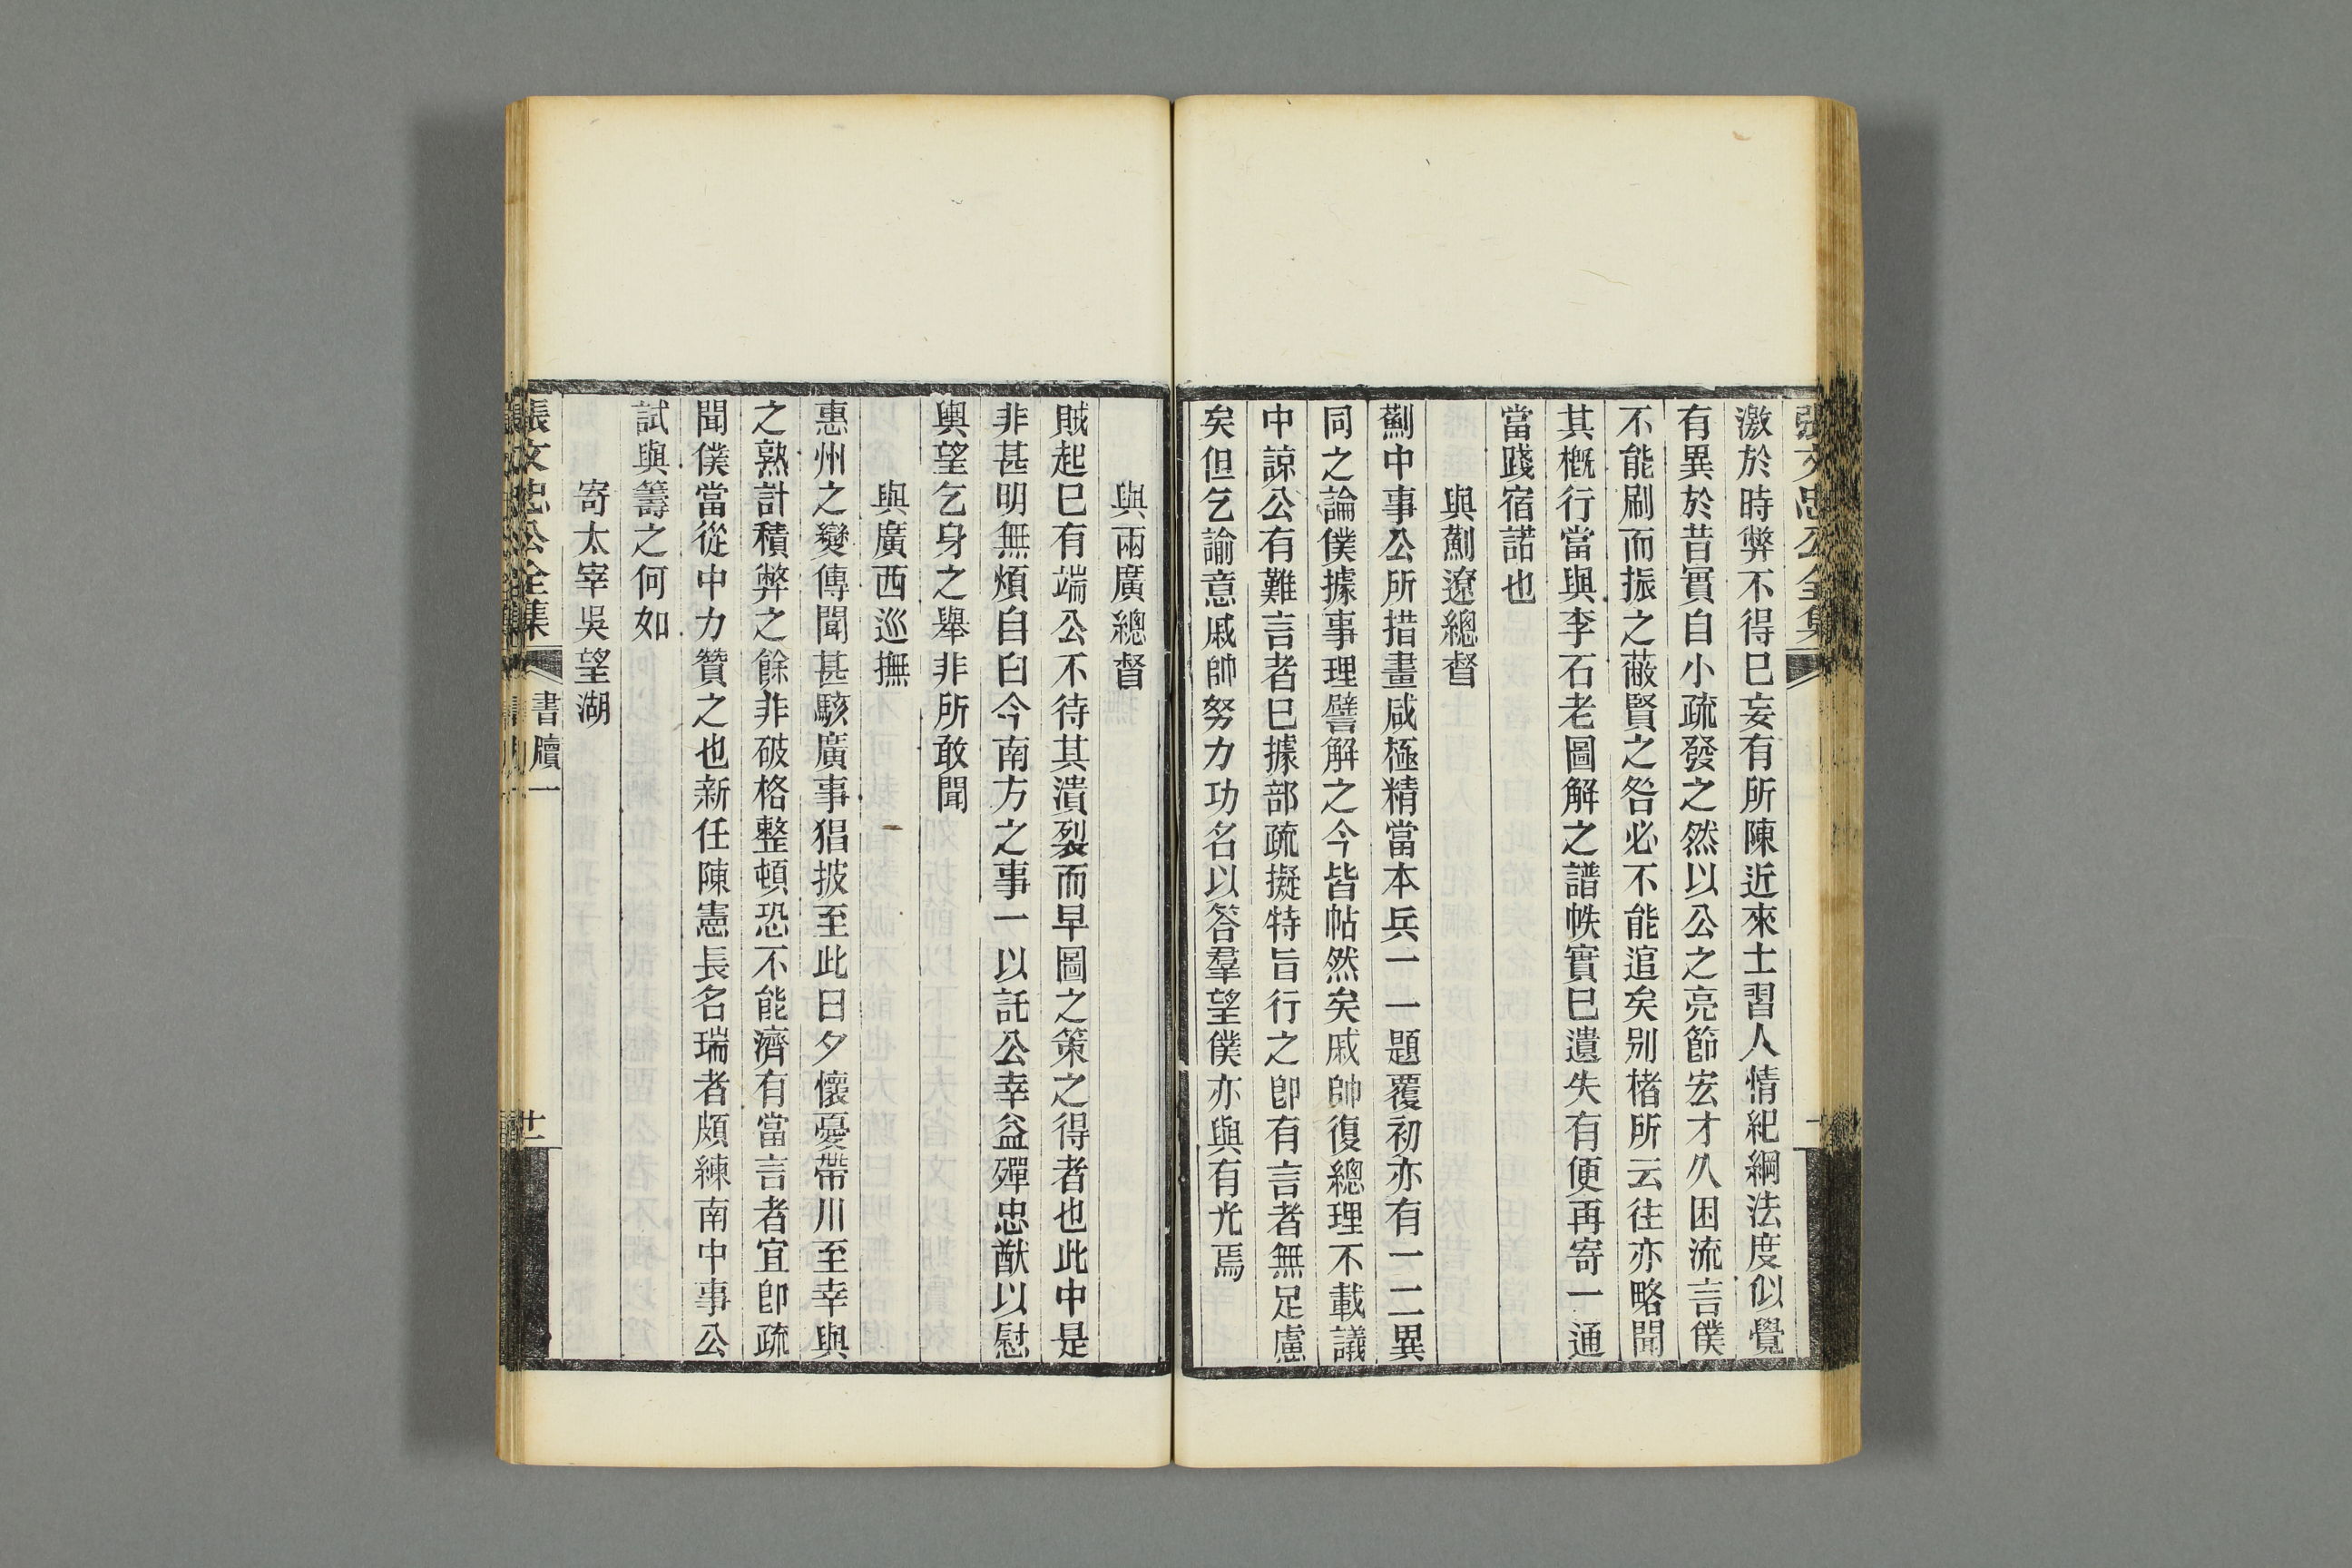 張文忠公全集
激於時弊不得巳妄有所陳近來士習人情紀綱法度似覺
有異於昔實自小疏發之然以公之亮節宏才久困流言僕
不能刷而振之蔽賢之咎必不能逭矣别楮所云往亦略聞
其概行當與李石老圖解之譜帙實巳遺失有便再寄一通
當踐宿諾也
與薊遼總督
薊中事公所措畫咸極精當本兵一一題覆初亦有一二異
同之論僕據事理譬解之今皆帖然矣戚帥復總理不載議
中諒公有難言者巳據部疏擬特旨行之卽有言者無足慮
矣但乞諭意戚帥努力功名以答羣望僕亦與有光焉
與兩廣總督
賊起巳有端公不待其潰裂而早圖之策之得者也此中是
非甚明無煩自白今南方之事一以託公幸益殫忠猷以慰
輿望乞身之舉非所敢聞
與廣西巡撫
惠州之變傳聞甚駭廣事猖披至此日夕懷憂帶川至幸與
之熟計積弊之餘非破格整頓恐不能濟有當言者宜卽疏
聞僕當從中力贊之也新任陳憲長名瑞者頗練南中事公
試與籌之何如
寄太宰吳望湖
張文忠公全集
書牘一
廿一